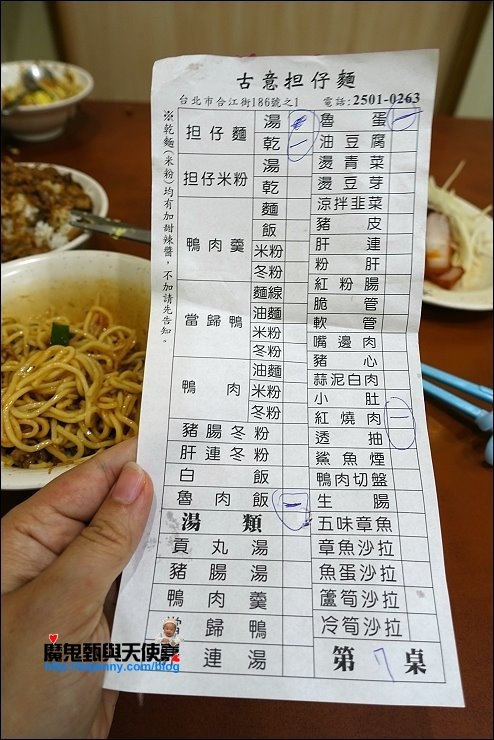 古意担仔麵
台北市合江街186號之1 電話:2501-0263
※乾麵(米粉)均有加甜辣醬,不加請先告知。
担仔麵 湯
乾 一
担仔米粉 湯
乾
鴨肉羹 麵
飯
米粉
冬粉
當歸鴨 麵線
油麵
米粉
冬粉
鴨肉 油麵
米粉
冬粉
豬腸冬粉
肝連冬粉
白飯
魯肉飯 一
湯類
貢丸湯
豬腸湯
鴨肉羹
當歸鴨
連湯
魯蛋 一
油豆腐
燙青菜
燙豆芽
涼拌韭菜
豬皮
肝連
粉肝
紅粉腸
脆管
軟管
嘴邊肉
豬心
蒜泥白肉
小肚
紅燒肉 一
透抽
鯊魚煙
鴨肉切盤
生腸
五味章魚
章魚沙拉
魚蛋沙拉
蘆筍沙拉
冷筍沙拉
第 7 桌
魔鬼甄與天使嘉